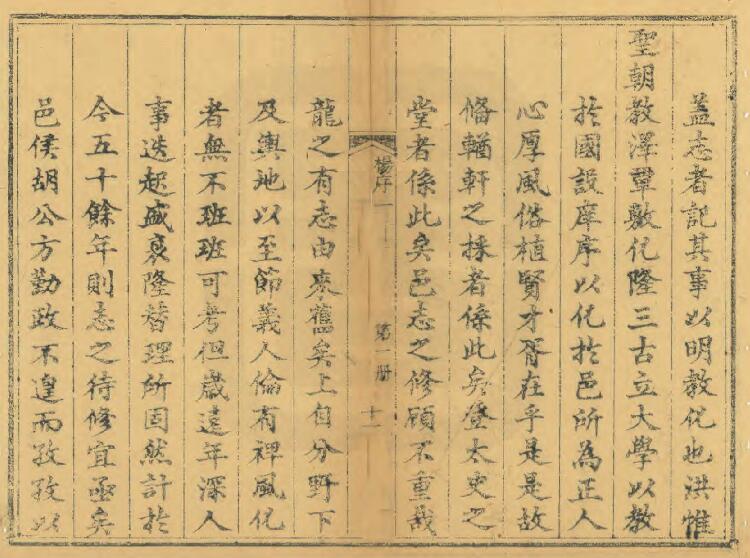 蓋志者記其事以明教化也洪惟
聖朝教澤覃敷化隆三古立大學以教
於國設庠序以化於邑所為正人
心厚風俗植賢才胥在乎是是故
備輶軒之採者係此矣登太史之
堂者係此矣邑志之修顧不重哉
楊序一
第一册
十一
龍之有志由來舊矣上自分野下
及輿地以至節義人倫有裨風化
者無不班班可考但歲遠年深人
事迭起盛衰隆替理所固然計於
今五十餘年則志之待修宜亟矣
邑侯胡公方勤政不遑而孜孜以